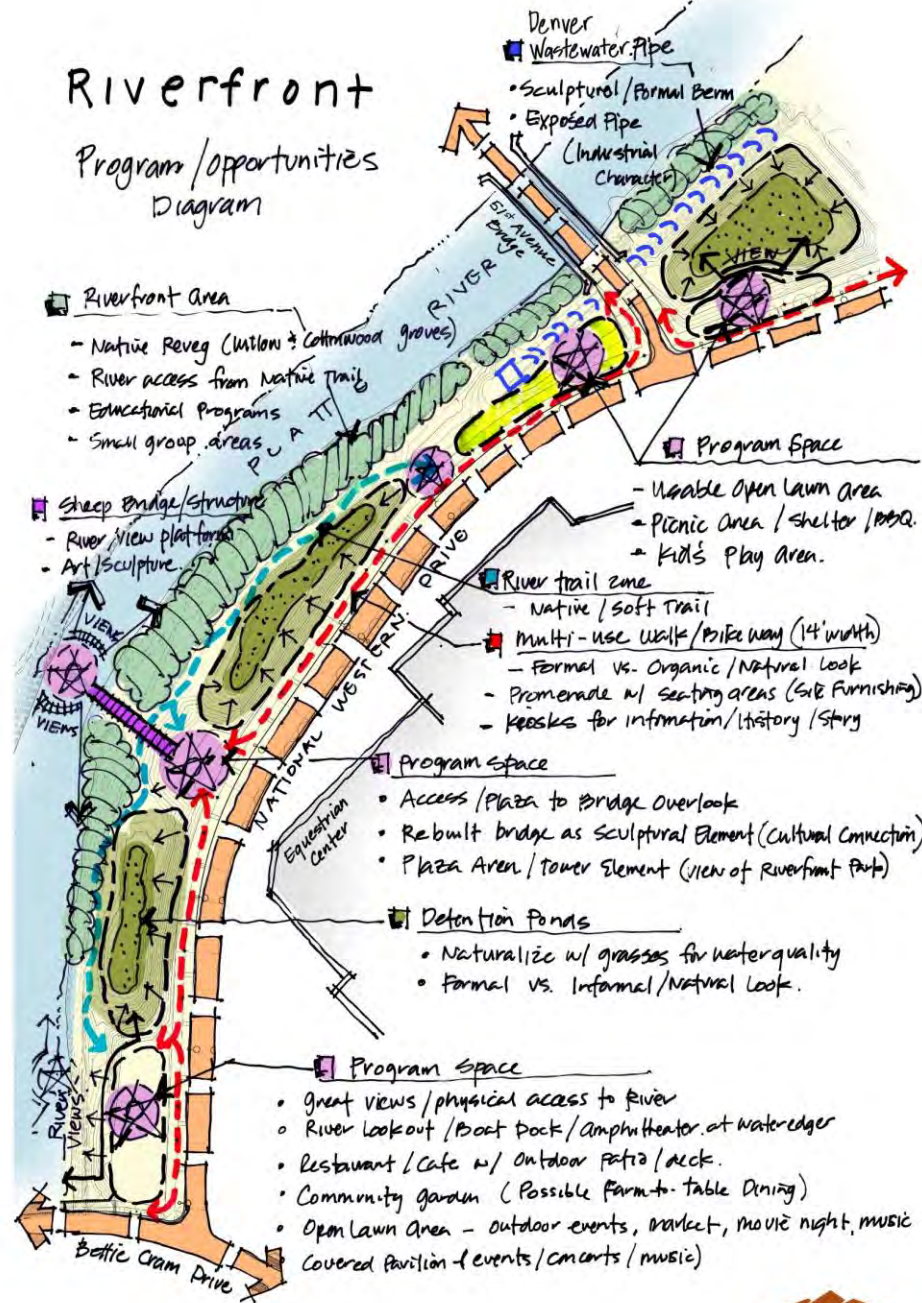 Riverfront
Program/opportunities
Diagram
Denver
Wastewater Pipe
• Sculptural/Formal Berm
• Exposed Pipe
(Industrial
Character)
51st Avenue
Bridge
VIEW
Riverfront Area
- Native Reveg (Willow & Cottonwood groves)
- River access from Native Trail
- Educational Programs
- Small group areas
PLATTE RIVER
Sheep Bridge/Structure
- River View platform
- Art/Sculpture
VIEWS
VIEWS
Program Space
- Usable Open Lawn Area
- Picnic Area / Shelter / BBQ.
- Kid's Play Area.
River trail zone
- Native / Soft Trail
Multi-use Walk/Bikeway (14' width)
- Formal vs. Organic/Natural Look
- Promenade w/ seating areas (Site Furnishing)
- Kiosks for Information/History/Story
NATIONAL WESTERN DRIVE
Equestrian
Center
Program Space
• Access/Plaza to Bridge Overlook
• Rebuilt bridge as Sculptural Element (Cultural Connection)
• Plaza Area / Tower Element (view of Riverfront Park)
Detention Ponds
• Naturalize w/ grasses for water quality
• Formal vs. Informal/Natural Look.
River
Views
Program Space
• great views / physical access to River
• River Lookout / Boat Dock / Amphitheater at water edge
• Restaurant / Cafe w/ Outdoor Patio / deck.
• Community garden (Possible Farm-to-Table Dining)
• Open Lawn Area - outdoor events, market, movie night, music
Covered Pavilion (events/concerts/music)
Bettie Cram Drive